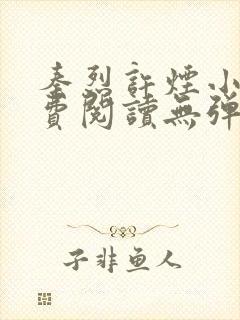 秦烈許煙小
費閱讀無彈
子非鱼人